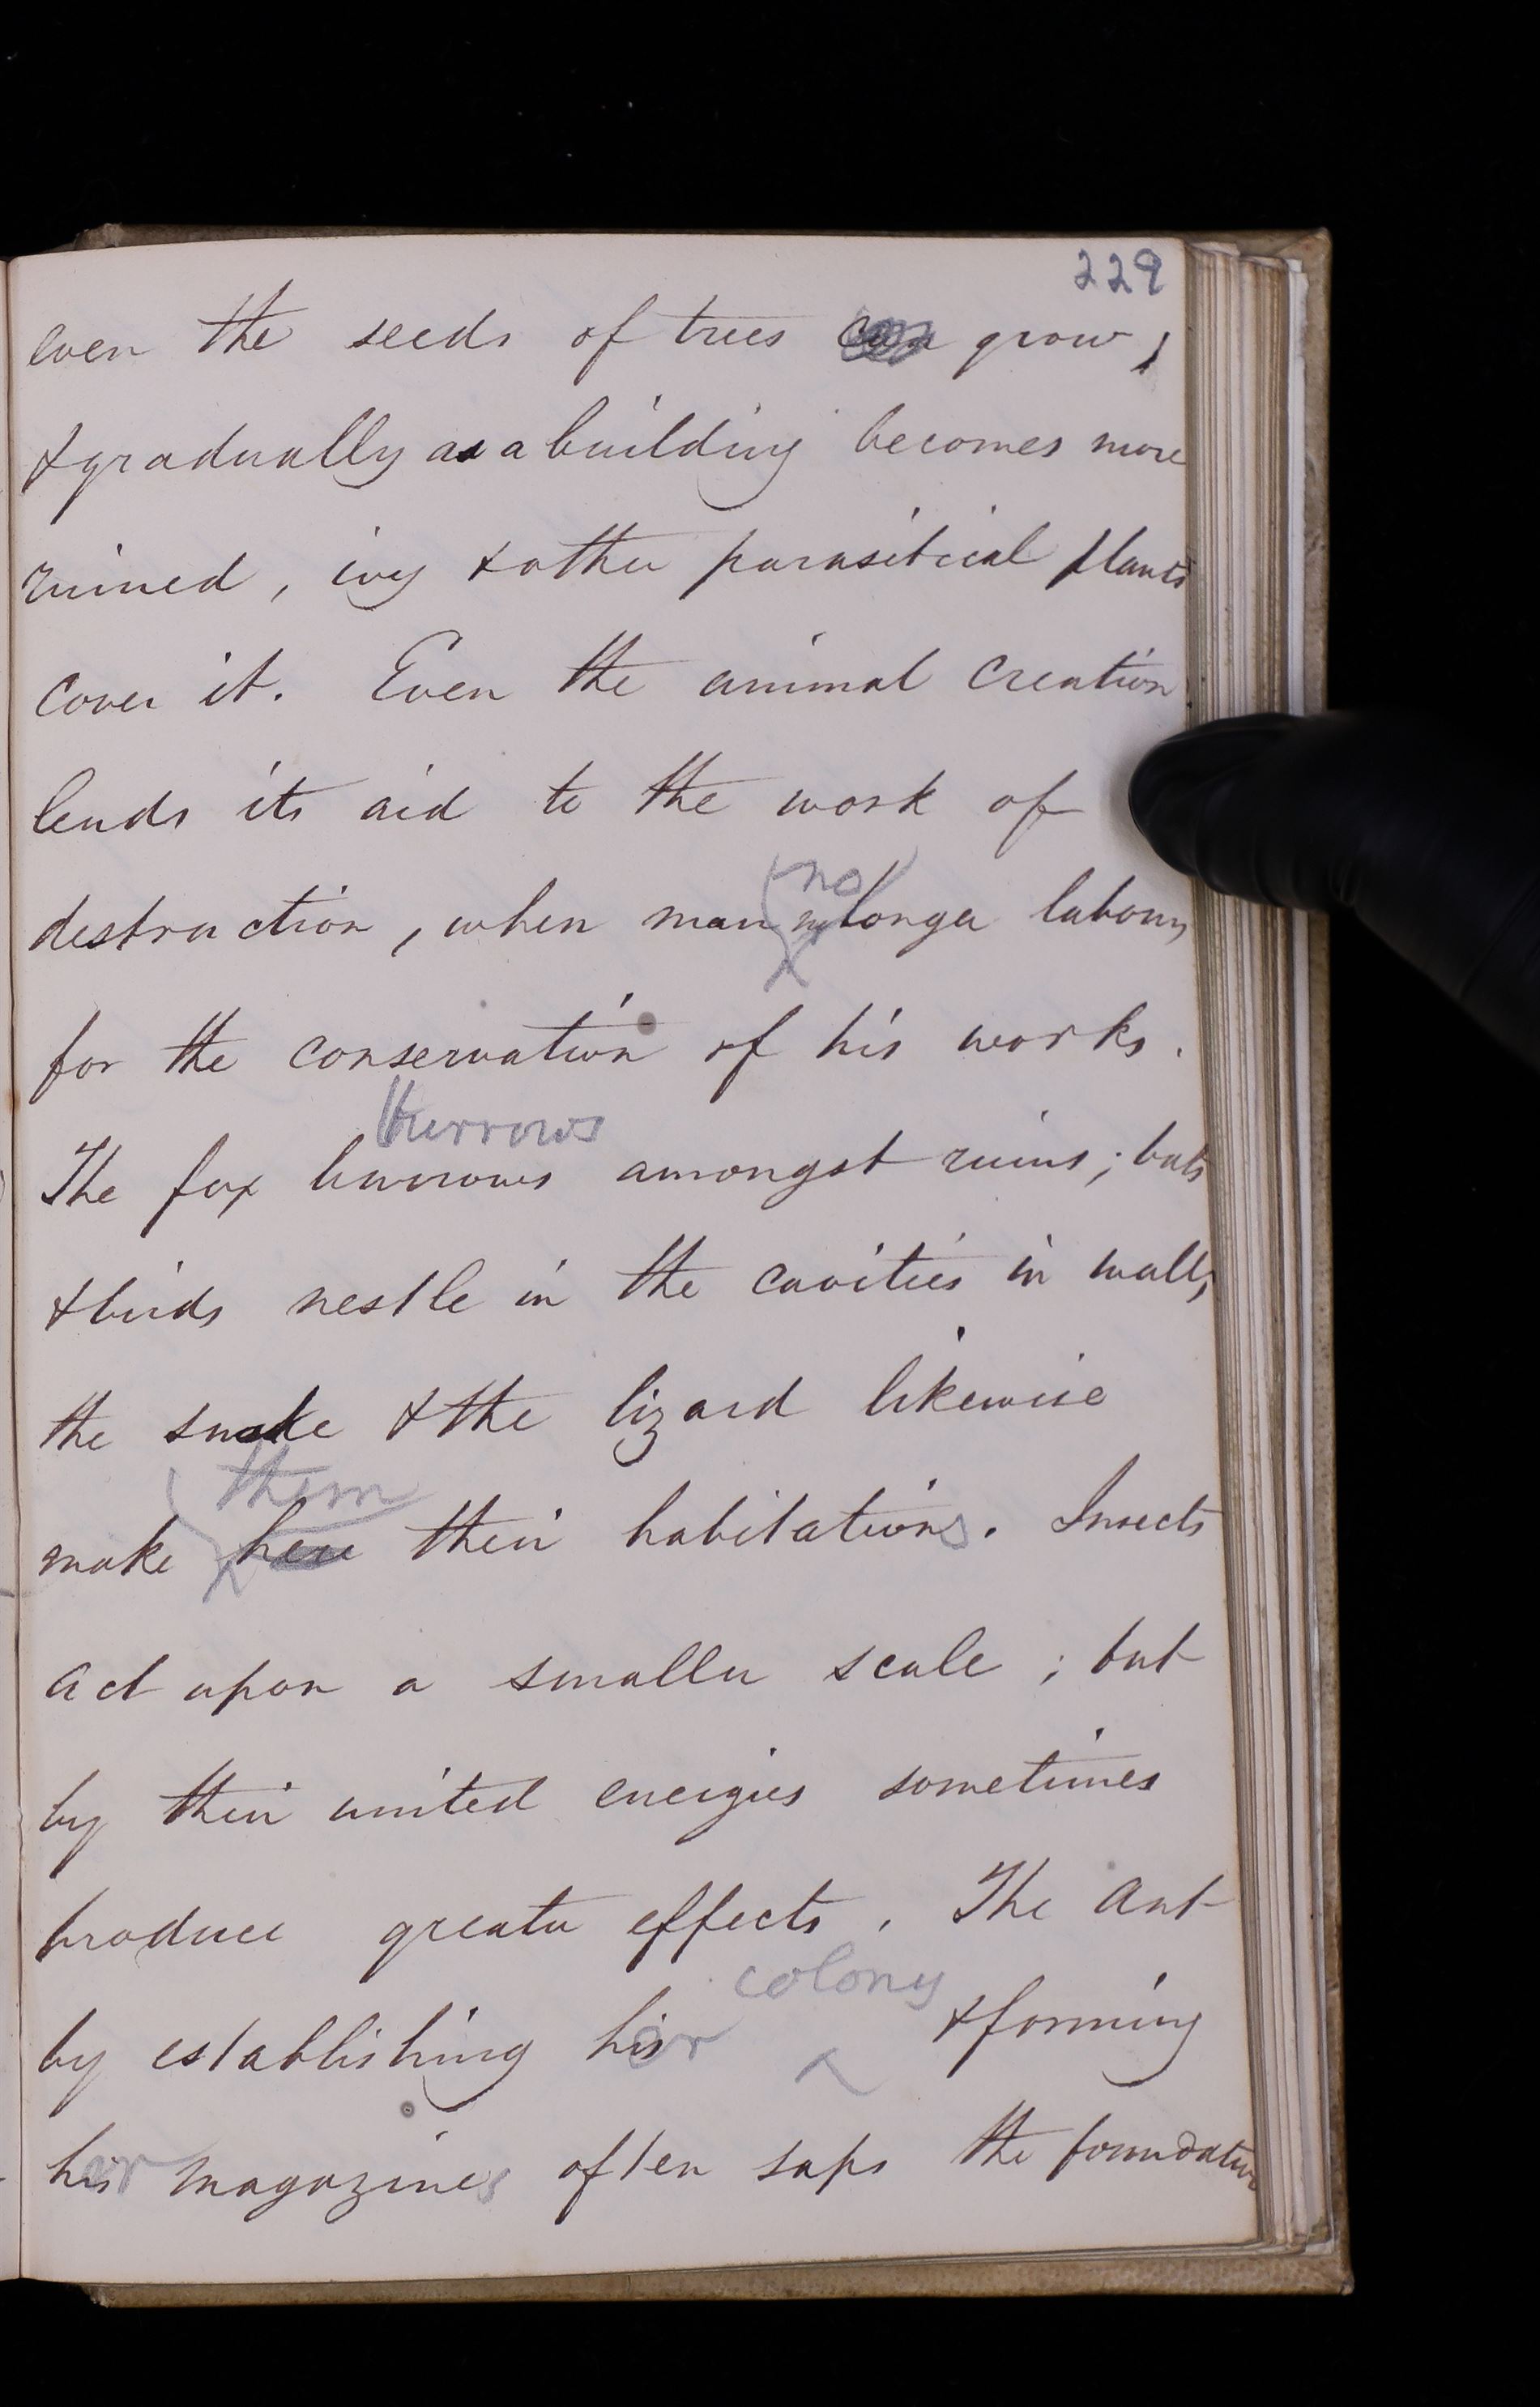 229
even the seeds of trees can grow,
& gradually as a building becomes more
ruined, ivy & other parasitical plants
cover it. Even the animal creation
lends its aid to the work of
no
destruction, when man no longer labours
for the conservation of his works.
burrows
The fox burrows amongst ruins; bats
& birds nestle in the cavities in walls,
the snake & the lizard likewise
them
make here their habitations. Insects
act upon a smaller scale; but
by their united energies sometimes
produce greater effects. The ant
colony
by establishing her & forming
her magazines often saps the foundation